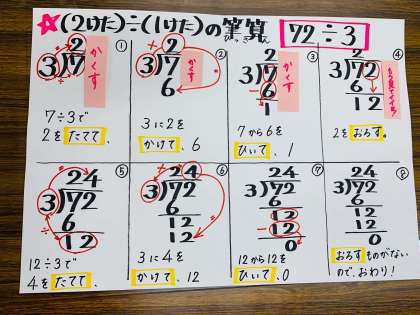 ☆(2けた)÷(1けた)の筆算
ひっさん
72÷3
①
2
3)7
かくす
7÷3で
2をたてて、
②
2
3)7
6
かくす
3に2を
かけて、6
③
2
3)7
6
1
かくす
7から6を
ひいて、1
④
2
3)72
6
12
2をおろす。
⑤
24
3)72
6
12
12÷3で
4をたてて、
⑥
24
3)72
6
12
12
3に4を
かけて、12
⑦
24
3)72
6
12
12
0
12から12を
ひいて、0
⑧
24
3)72
6
12
12
0
おろすものがない
ので、おわり!